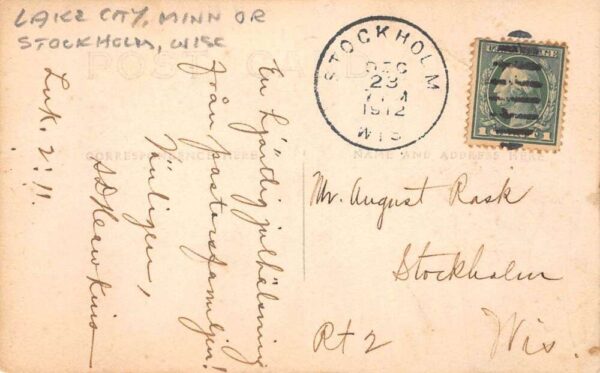 LAKE CITY, MINN OR
STOCKHOLM, WISC
POST CARD
CORRESPONDENCE HERE
NAME AND ADDRESS HERE
STOCKHOLM
DEC
23
1912
WIS
1
1
En hjärtlig julhälsning
från pastorsfamiljen!
Vänligen,
Luk. 2:11.
Mr. August Rask
Stockholm
Rt 2 Wis.